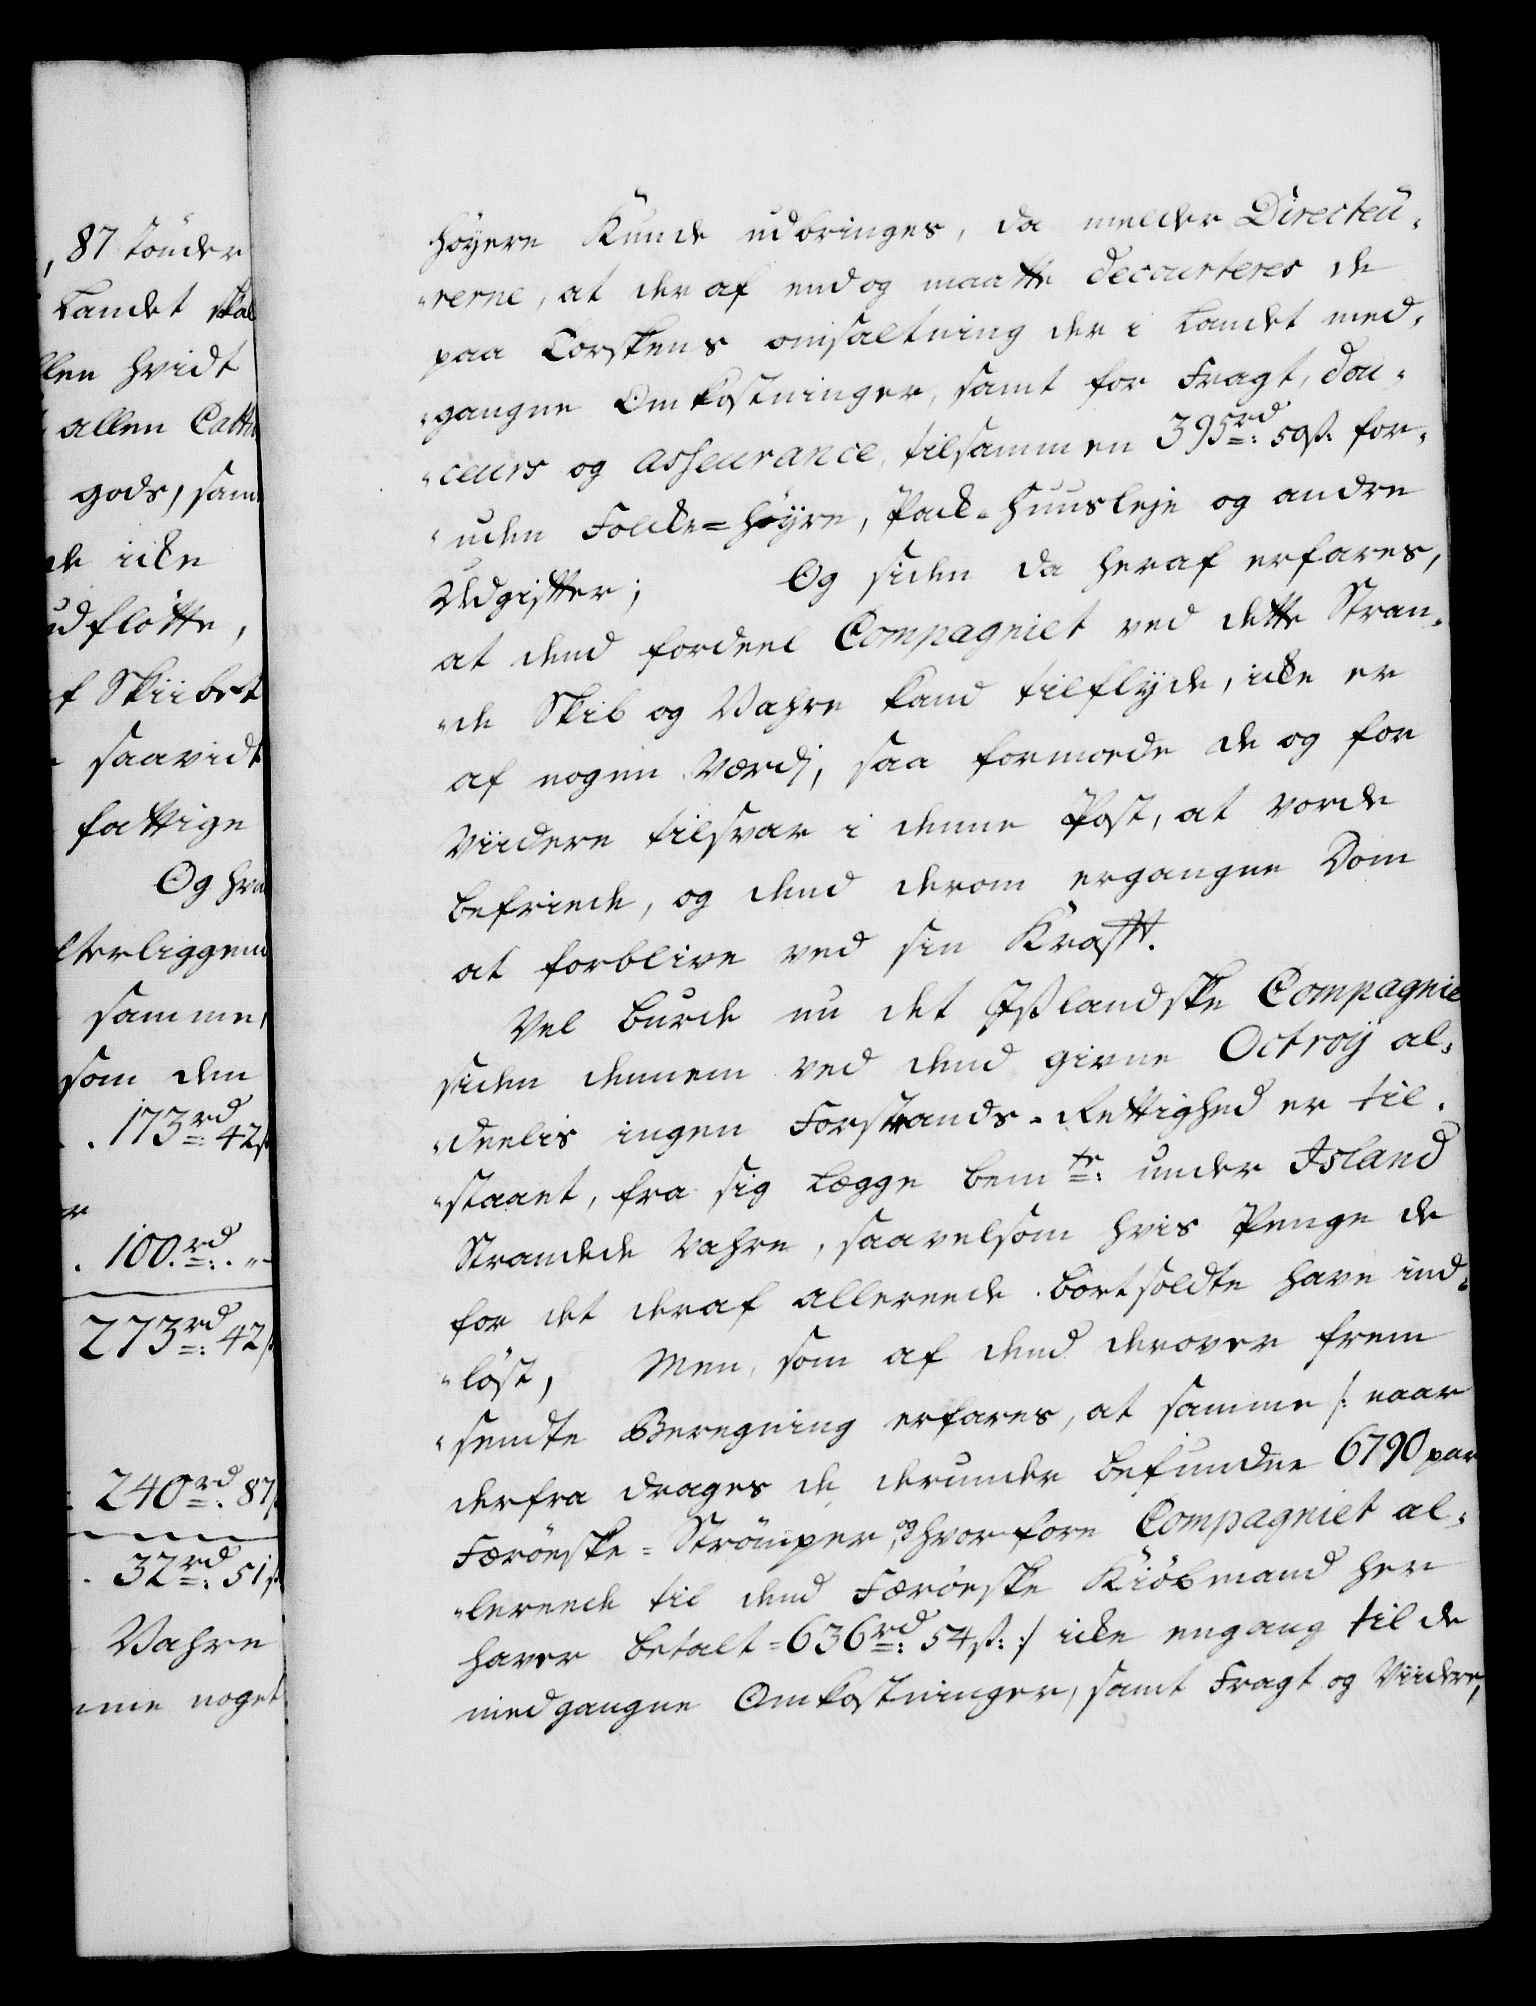 , 87 tönder
Landet skal
llen hvidt
allen Cattu
gods, sam
de icke
udflötte,
f Skiibet
saavidt
fattige
Og hva
lterliggend
samme,
som den
173rd: 42ß
100.rd: . „-
273rd: 42ß
240rd: 87ß
32rd: 51ß
Vahre
mme noget
høyere kunde udbringes, da melder Directeu-
„rerne, at deraf endog maatte decourteres de
paa Torskens omsaltning der i Landet med-
„gangne Omkostninger, samt for Fragt, dou-
„ceurs og asseurance, tilsammen 395rd: 59ß: for-
„uden Folcke=høyre, Pack-Huusleje og andre
Udgifter; Og siden da heraf erfares,
at dend fordeel Compagniet ved dette Stran-
„de Skib og Vahre kand tilflyde, icke er
af nogen Værdj, saa formode de og for
Viidere tilsvar i denne Post, at vorde
befriede, og dend derom ergangne Dom
at forblive ved sin Krafft.
Vel burde nu det Ißlandske Compagnie
siden dennem ved dend givne Octroy al-
„deelis ingen Forstrands-Rettighed er til-
„staaet, fra sig Lægge bemte: under Island
Strandede Vahre, saavelsom hvis Penge de
for det deraf allereede bortsoldte have ind-
„löst, Men, som af dend derover frem
„sendte Beregning erfares, at samme /: naar
derfra drages de derunder befundne 6790 par
Færöeske=Strömper, og hvorfore Compagniet al-
„lereede til dend Færöeske Kiöbmand her
haver betalt=636rd: 54ß: :/ icke engang til de
medgangne Omkostninger, samt Fragt og Viidere,